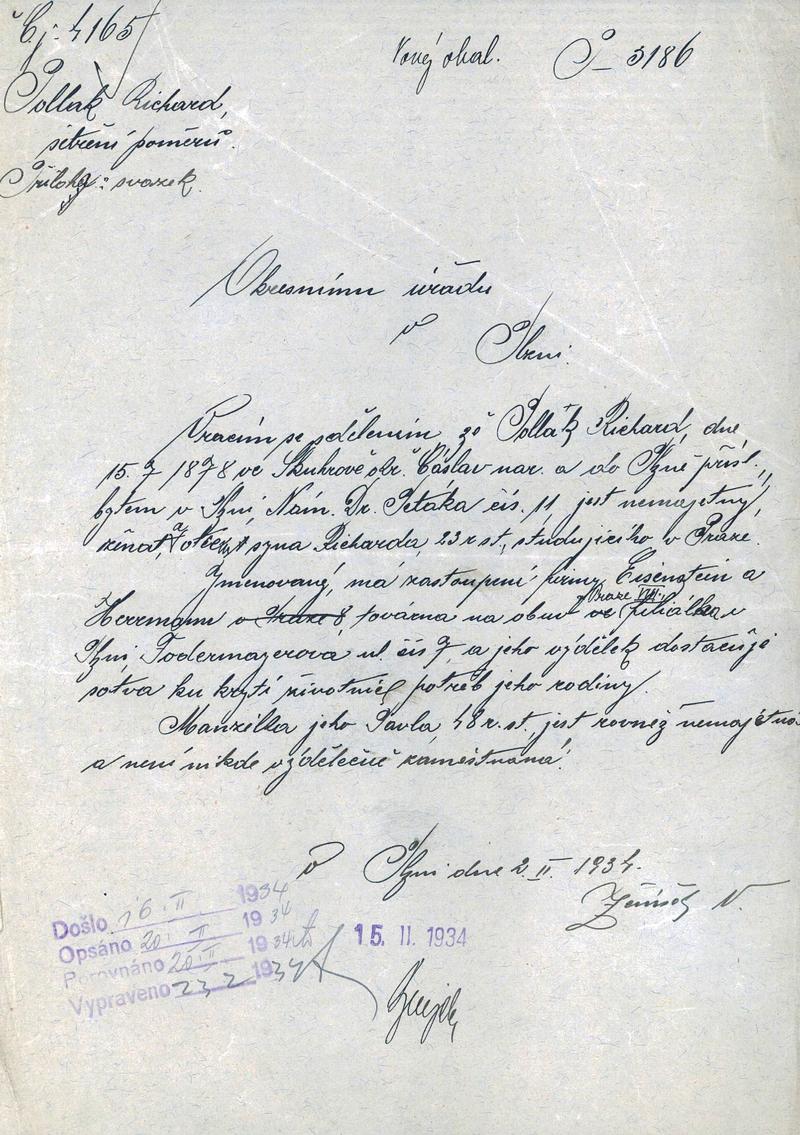 Čj: 4165
Nový obal. P- 3186
Pollak Richard,
šetření poměrů.
Přílohy: svazek.
Okresnímu úřadu
v
Plzni.
Vracím se sdělením, že Pollák Richard, dne
15. 7 1878 ve Skuhrově okr. Čáslav nar. a do Plzně přísl.,
bytem v Plzni, Nám. Dr. Petáka čís. 11 jest nemajetný,
ženat, otec syna Richarda, 23 r. st., studujícího v Praze.
Jmenovaný, má zastoupení firmy Eisenstein a
Praze VIII.
Herrmann v Praze 8 továrna na obuv ve filiálka v
Plzni, Todermayerová ul. čís 7, a jeho výdělek dostačuje
sotva ku krytí životních potřeb jeho rodiny.
Manželka jeho Pavla, 48 r. st., jest rovněž nemajetná
a není nikde výdělečně zaměstnána.
V Plzni dne 2. II. 1934.
Došlo 16. II 1934
Opsáno 20. II 1934
Porovnáno 20. II 1934
Vypraveno 23 2 1934
15. II. 1934